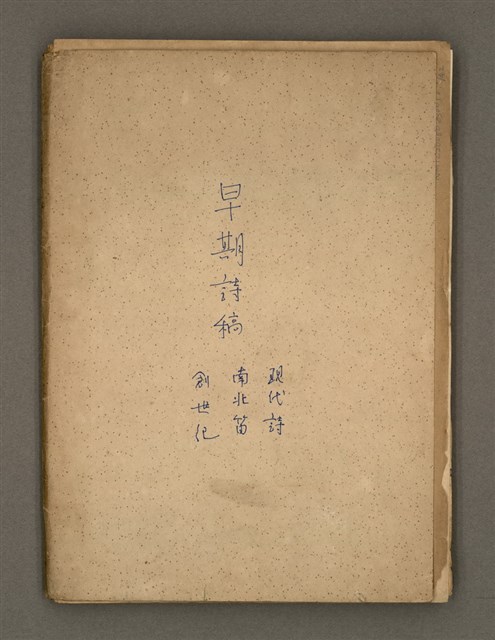 早期詩稿
現代詩
南北笛
創世紀